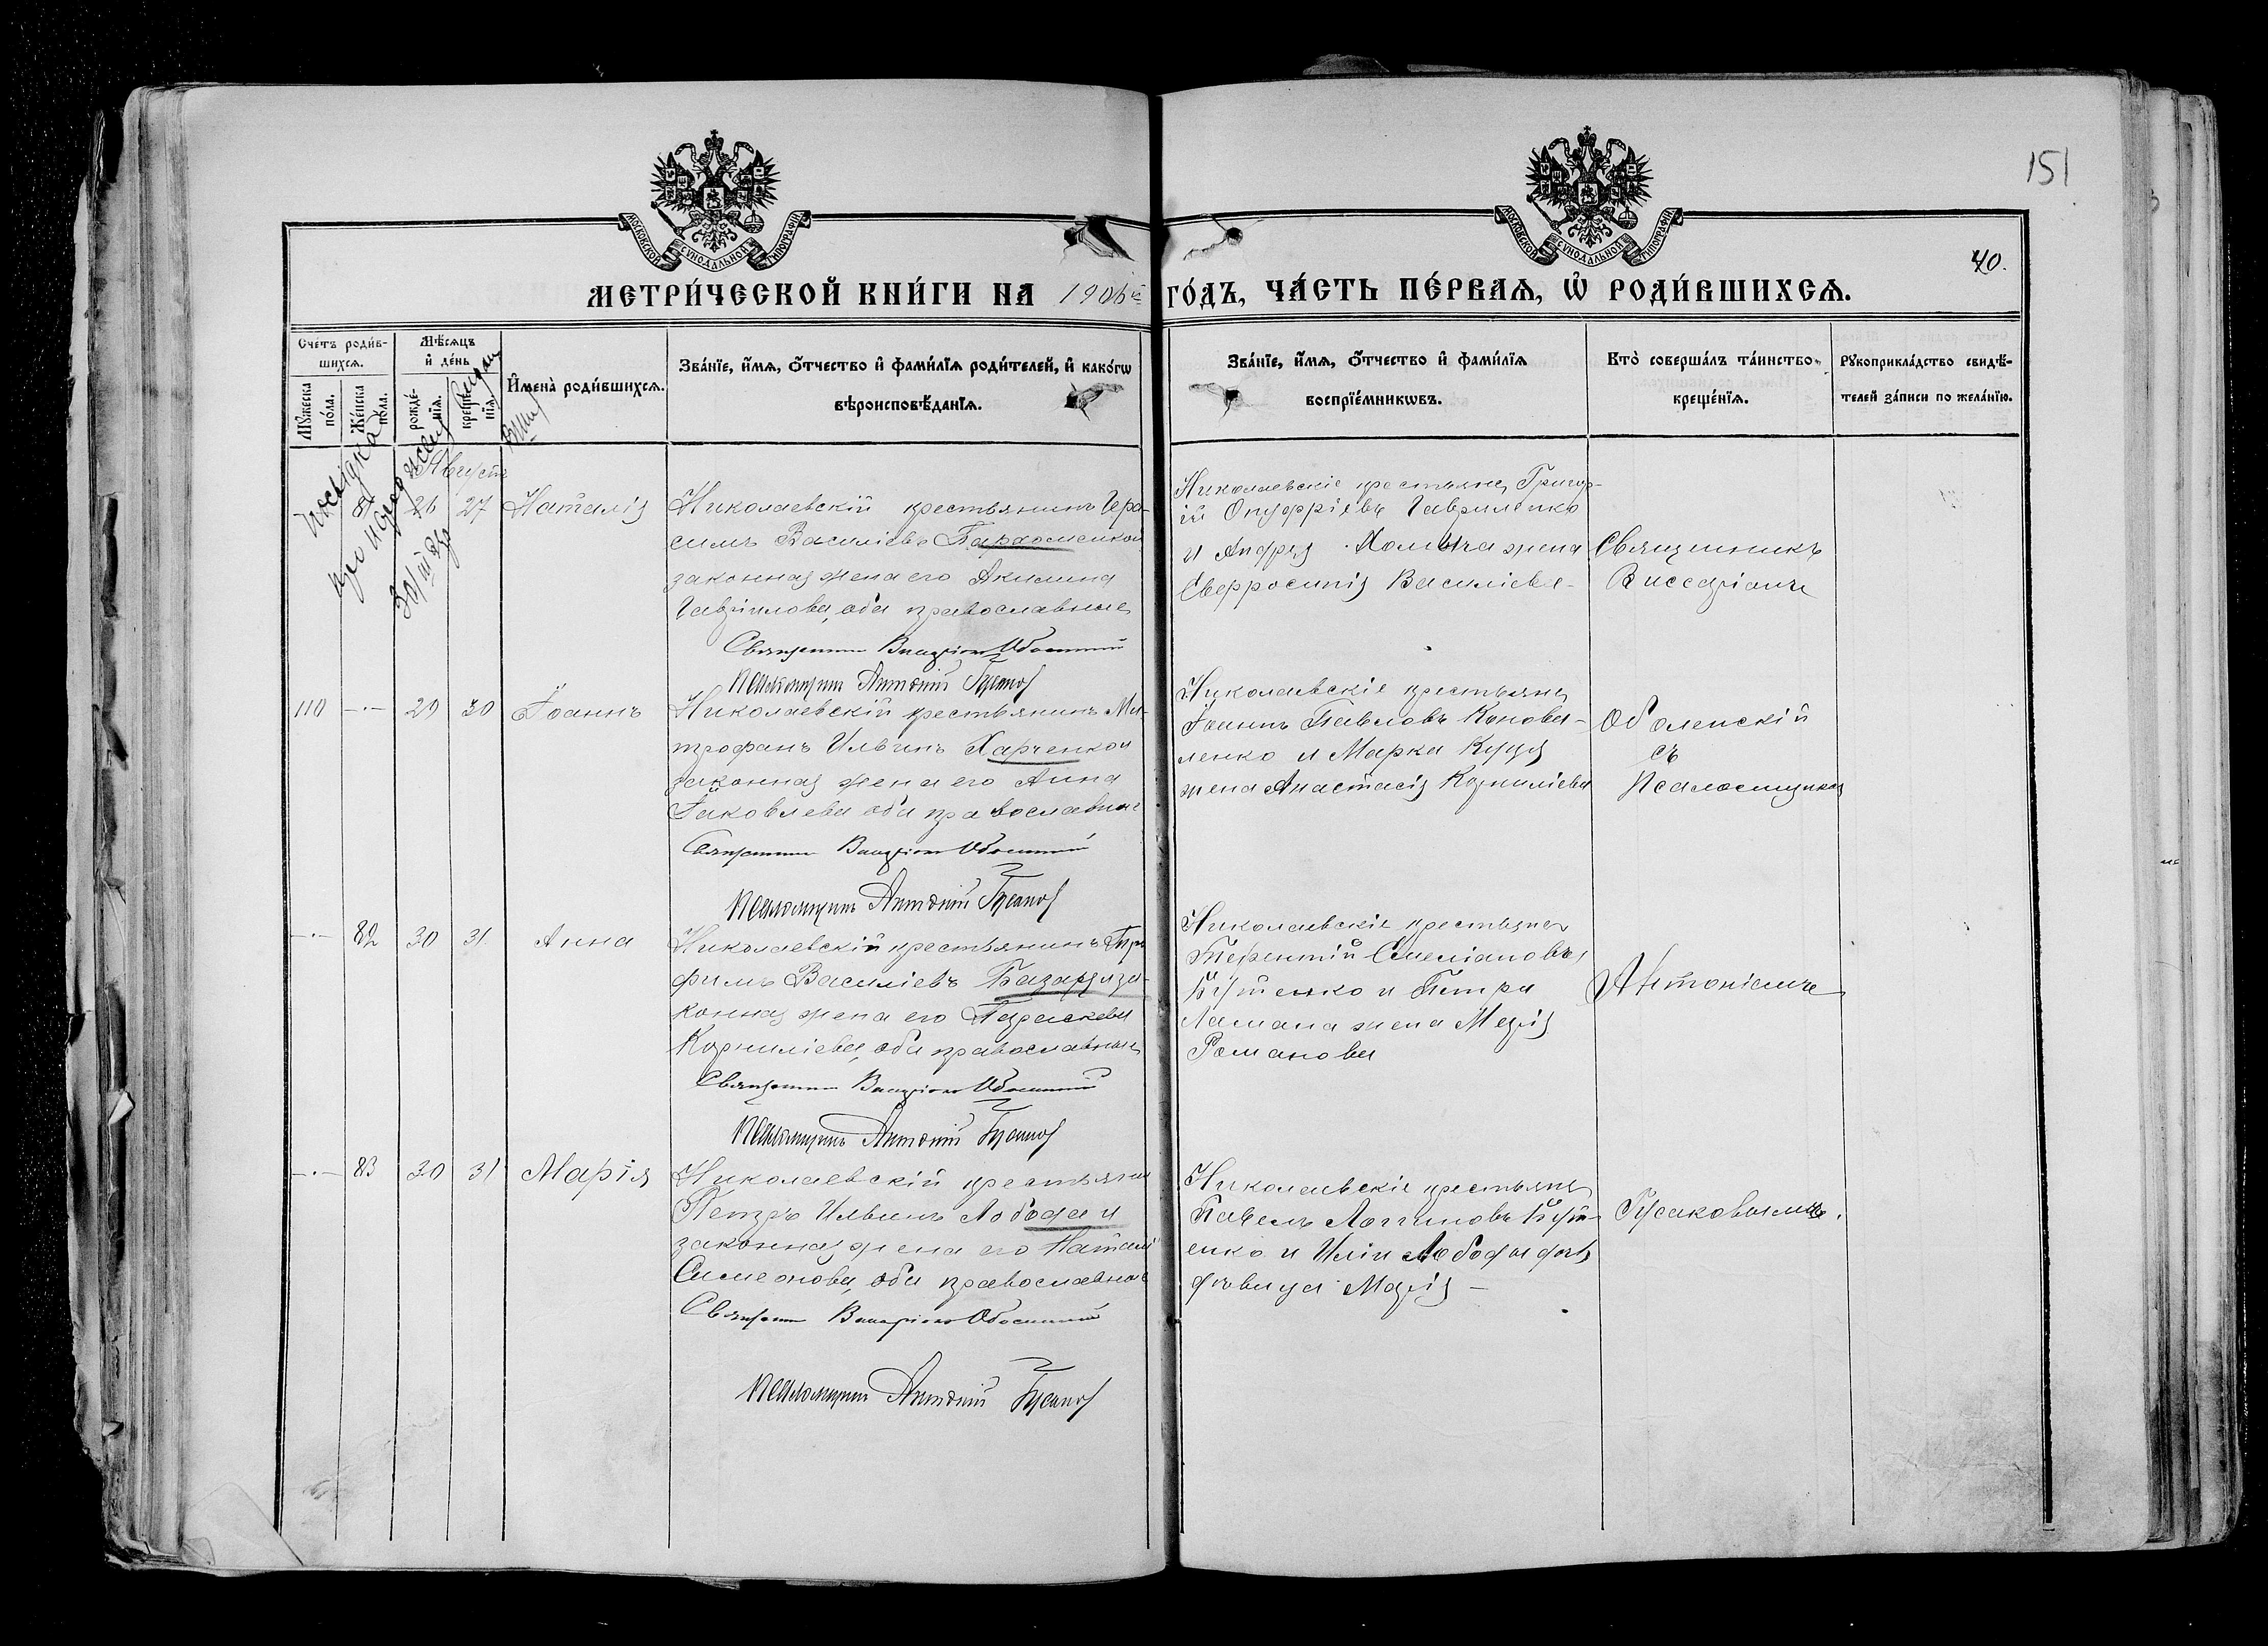 151
МОСКОВСКОЙ СѴНОДАЛЬНОЙ ТИПОГРАФІИ
МОСКОВСКОЙ СѴНОДАЛЬНОЙ ТИПОГРАФІИ
40.
МЕТРИ́ЧЕСКОЙ КНИ́ГИ НА 1906й ГО́ДЪ, ЧА́СТЬ ПЕ́РВАѦ, Ѡ РОДИ́ВШИХСѦ.
Сче́тъ роди́в-
шихсѧ.
Мꙋ́жеска по́ла.
Же́нска по́ла.
Мѣ́сѧцъ
и҆ де́нь
рожде́-
нїѧ.
креще́-
нїѧ.
И҆мена̀ роди́вшихсѧ.
Зва́нїе, и҆́мѧ, ѻ҆́тчество и҆ фами́лїѧ роди́телей, и҆ како́гѡ
вѣроисповѣ́данїѧ.
Зва́нїе, и҆́мѧ, ѻ҆́тчество и҆ фами́лїѧ
воспрїе́мникѡвъ.
Кто̀ соверша́лъ та́инство
креще́нїѧ.
Рꙋкоприкла́дство свидѣ́-
телей за́писи по жела́нїю.
Августъ
26 27 Наталія
Николаевскій крестьянинъ Гера-
симъ Василіевъ Пархоменко и
законная жена его Акилина
Гаврилова, оба православные
Священникъ Виссаріонъ Оболенскій
Псаломщикъ Антоній Гусаковъ
Николаевскіе крестьяне, Григор-
ій Онуфріевъ Гавриленко
и Андрея жена
Евфросинія Василіева
Священникъ
Виссаріонъ
110 — 29 30 Іоаннъ
Николаевскій крестьянинъ Ми-
трофанъ Ильинъ Харченко и
законная жена его Анна
Іаковлева оба православные
Священникъ Виссаріонъ Оболенскій
Псаломщикъ Антоній Гусаковъ
Николаевскіе крестьяне
Іоаннъ Павловъ Конова-
ленко и Марка
жена Анастасія Корниліева
Оболенскій
съ
Псаломщикомъ
— 82 30 31 Анна
Николаевскій крестьянинъ Тро-
фимъ Василіевъ Базар и за-
конная жена его Параскева
Корниліева, оба православные
Священникъ Виссаріонъ Оболенскій
Псаломщикъ Антоній Гусаковъ
Николаевскіе крестьяне
Терентій Емеліановъ
Бутенко и Петра
Ламана жена Марія
Романова
Антоніемъ
— 83 30 31 Марія
Николаевскій крестьянинъ
Петръ Ильинъ Лобода и
законная жена его Наталія
Симеонова, оба православные
Священникъ Виссаріонъ Оболенскій
Псаломщикъ Антоній Гусаковъ
Николаевскіе крестьяне
Павелъ Логгиновъ Бут-
енко и Иліи Лободы дочь
дѣвица Марія —
Гусаковымъ.